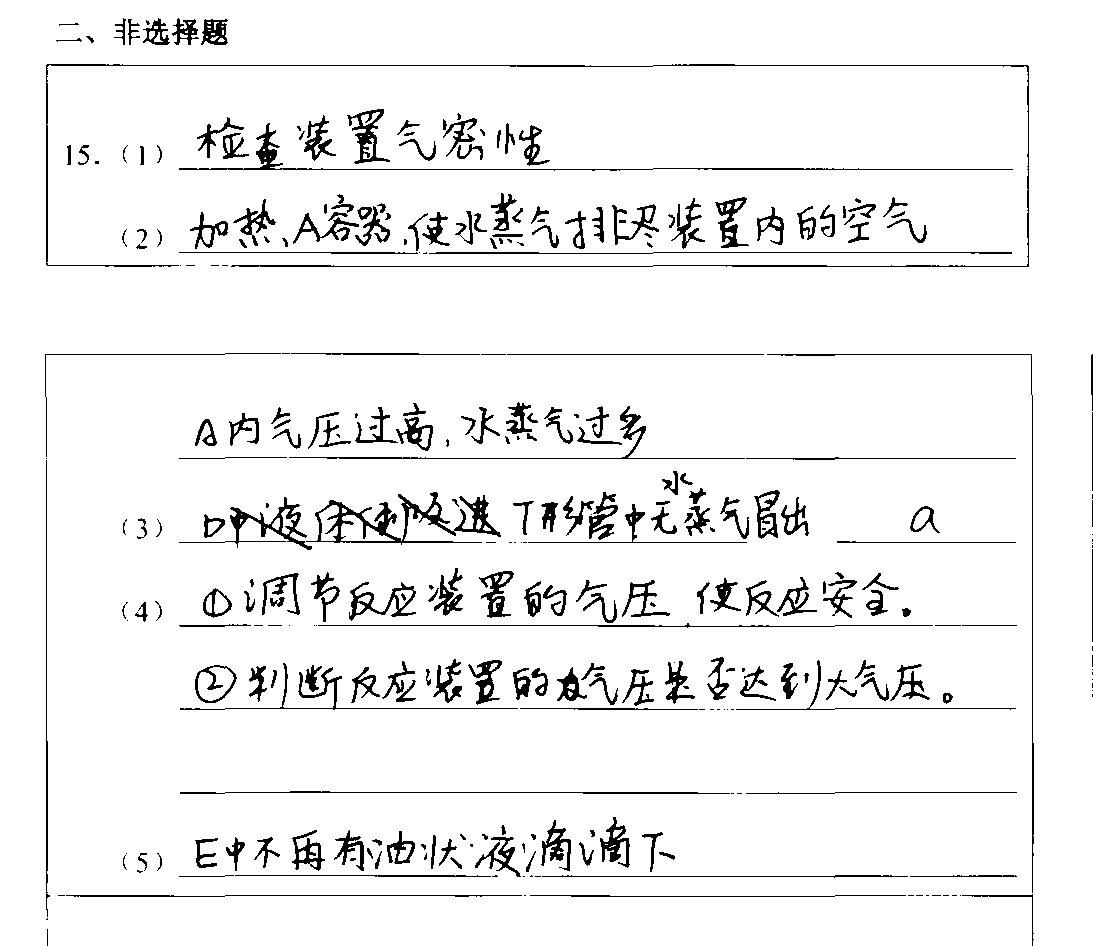 二、非选择题
15.（1） 检查装置气密性
（2） 加热A容器,使水蒸气排尽装置内的空气
A内气压过高,水蒸气过多
（3） T形管中无水蒸气冒出 a
（4） ①调节反应装置的气压,使反应安全。
②判断反应装置的气压是否达到大气压。
（5） E中不再有油状液滴滴下